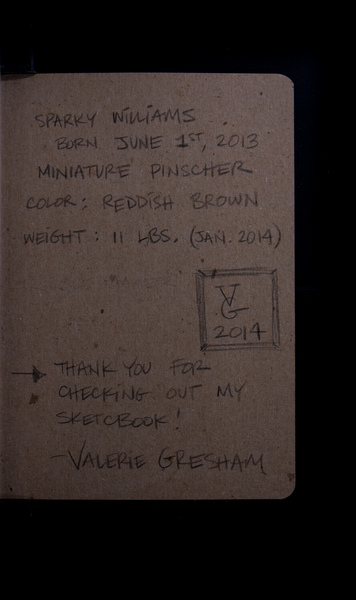 SPARKY WILLIAMS
BORN JUNE 1ST, 2013
MINIATURE PINSCHER
COLOR: REDDISH BROWN
WEIGHT: 11 LBS. (JAN. 2014)
VG
2014
→ THANK YOU FOR
CHECKING OUT MY
SKETCBOOK!
-VALERIE GRESHAM